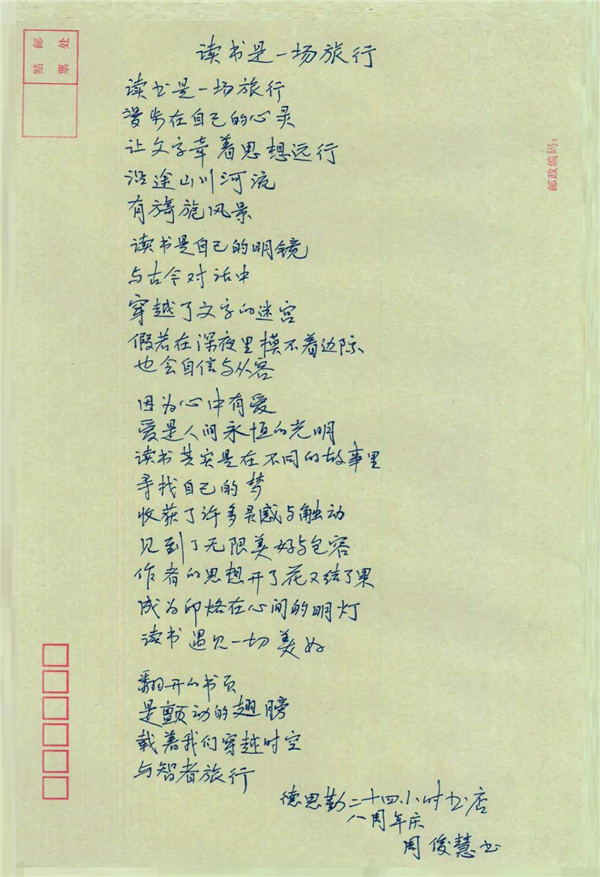 邮 处
贴 票
邮政编码:
读书是一场旅行
读书是一场旅行
漫步在自己的心灵
让文字牵着思想远行
沿途山川河流
有旖旎风景
读书是自己的明镜
与古今对话中
穿越了文字的迷宫
假若在深夜里摸不着边际
也会自信与从容
因为心中有爱
爱是人间永恒的光明
读书其实是在不同的故事里
寻找自己的梦
收获了许多灵感与触动
见到了无限美好与包容
作者的思想开了花又结了果
成为印烙在心间的明灯
读书遇见一切美好
翻开的书页
是颤动的翅膀
载着我们穿越时空
与智者旅行
德思勤二十四小时书店
八周年庆
周俊慧书